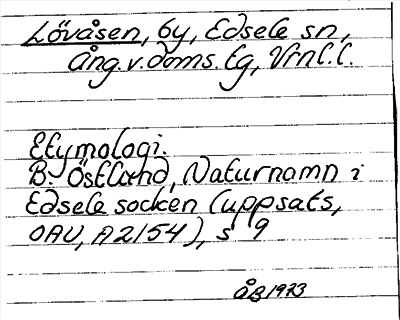 Lövåsen, by, Edsele sn,
Ång. v. doms. tg, Vrnl. l.
Etymologi.
B. Östlund, Naturnamn i
Edsele socken (uppsats,
OAU, A2154), s 9
ÅB 1973